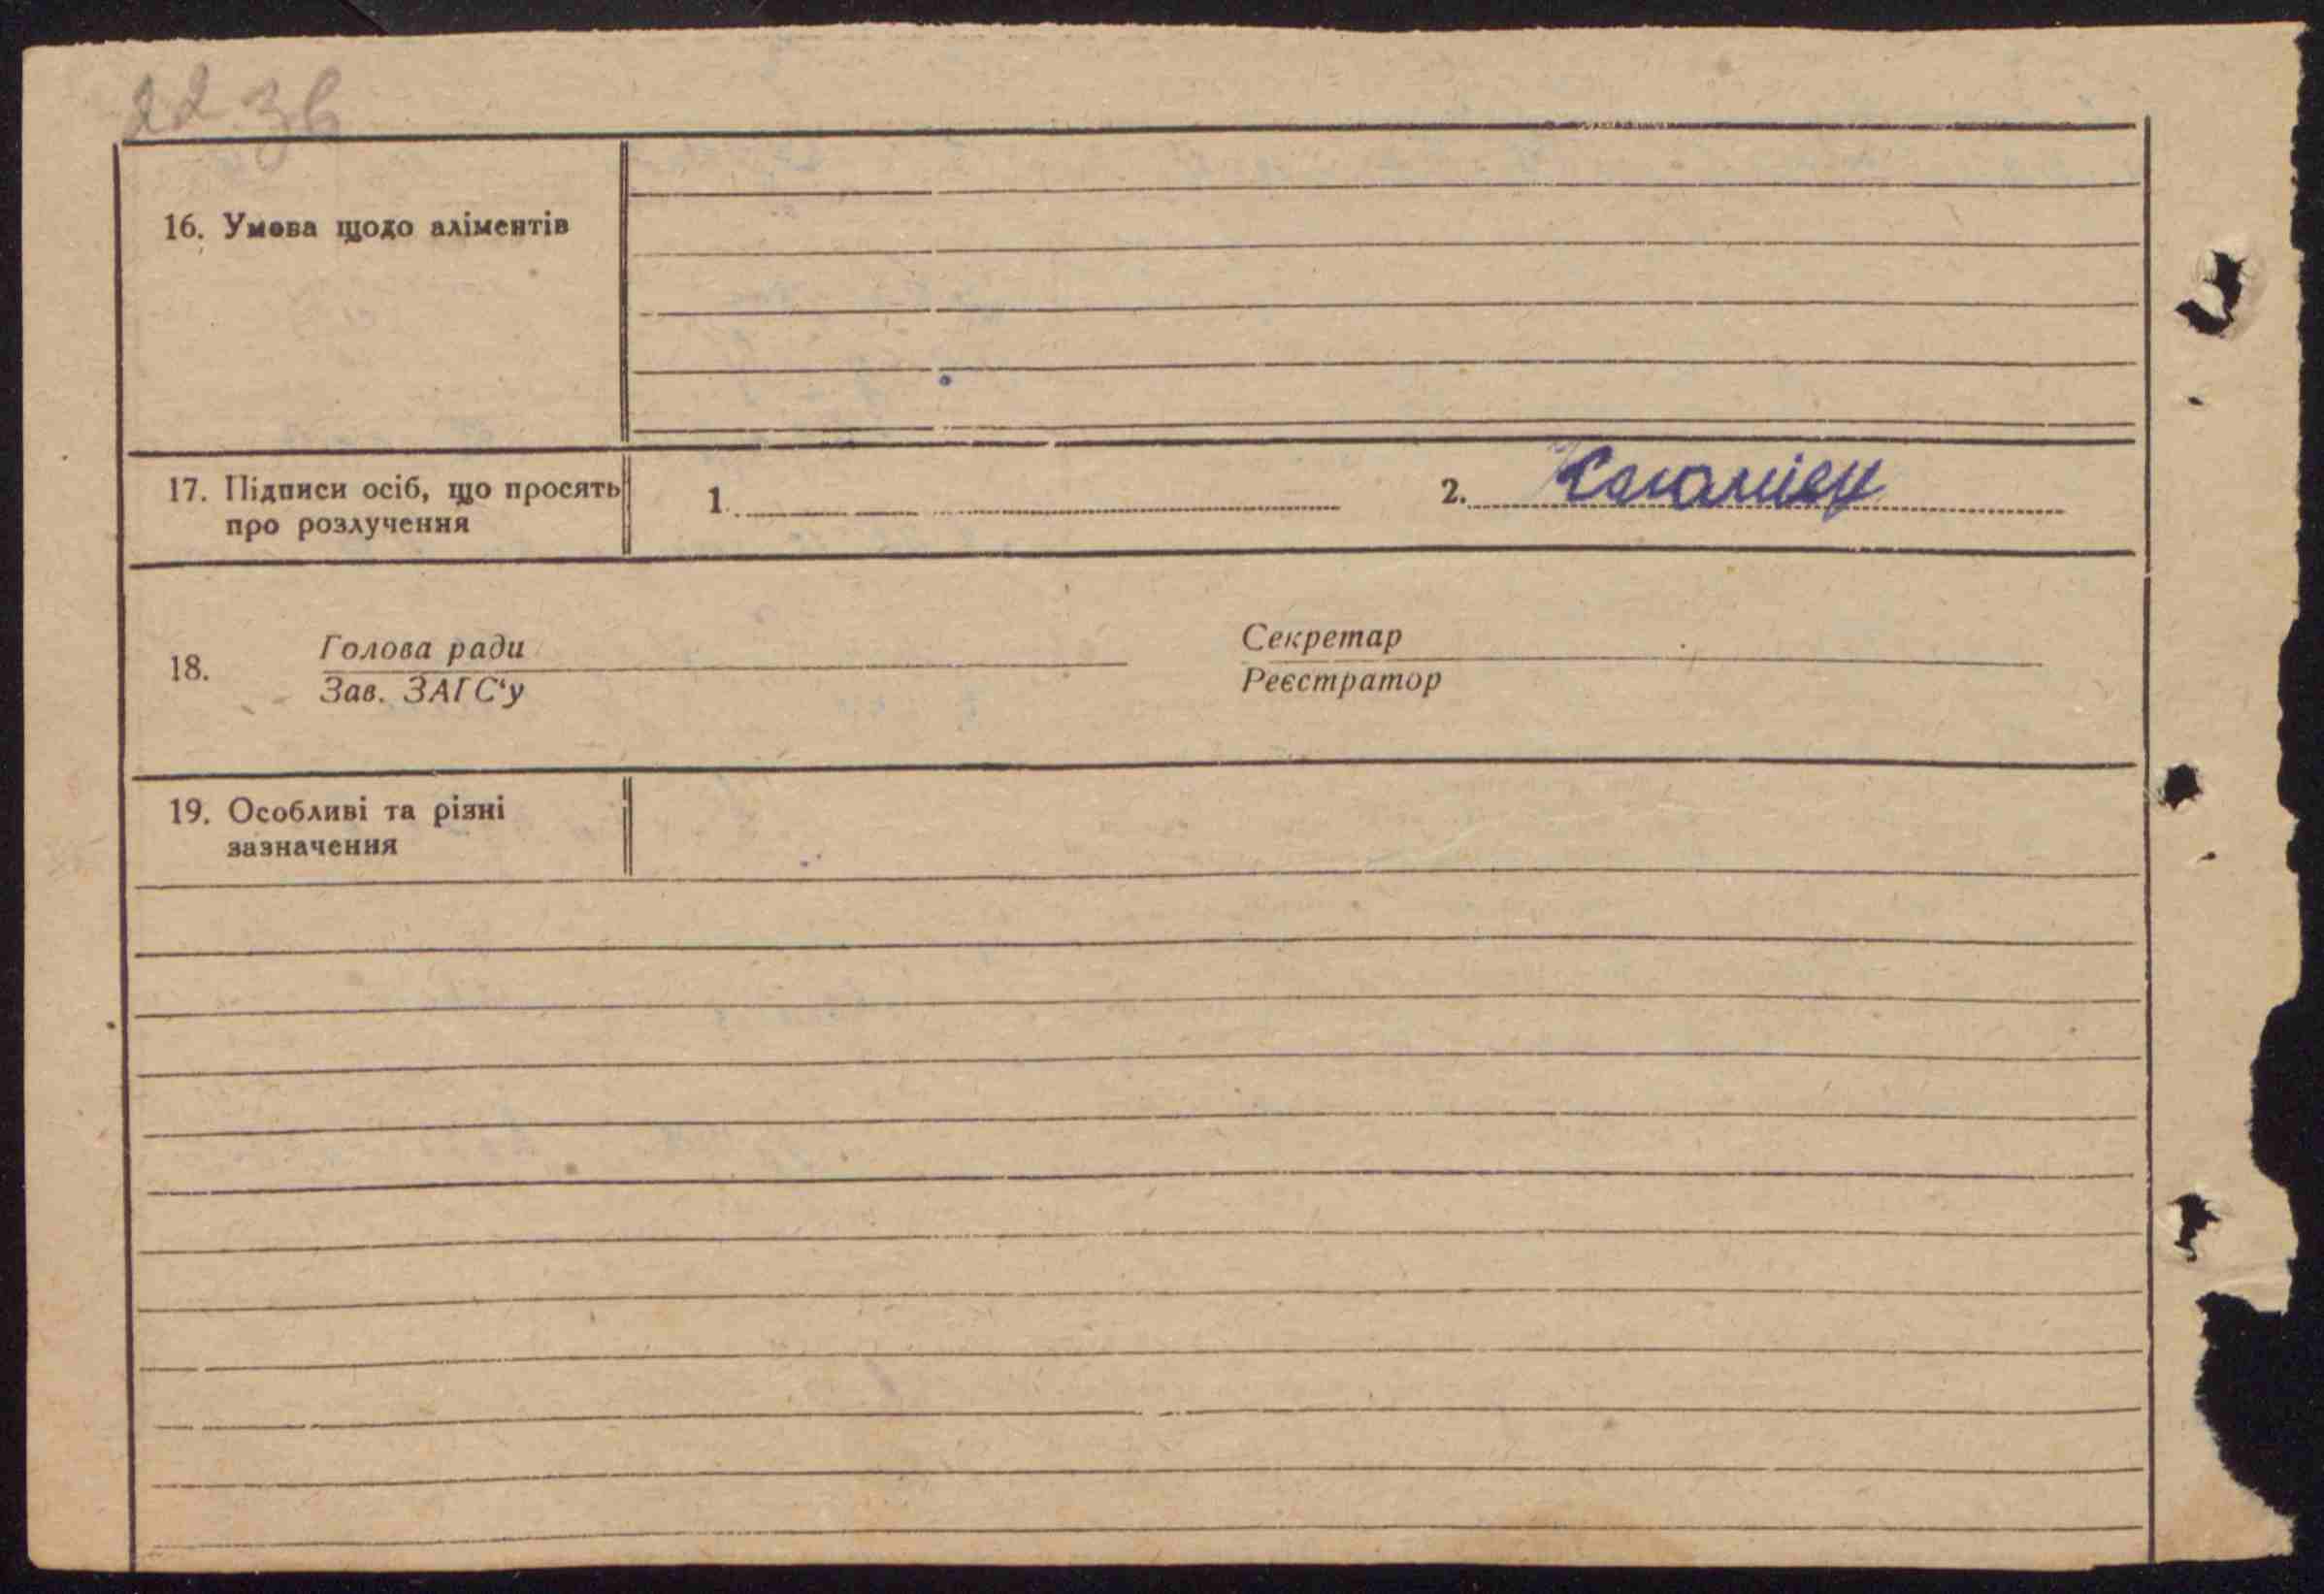 22 зв
16. Умова щодо аліментів
17. Підписи осіб, що просять
про розлучення
1.
2.
18.
Голова ради
Зав. ЗАГС‘у
Секретар
Реєстратор
19. Особливі та різні
зазначення